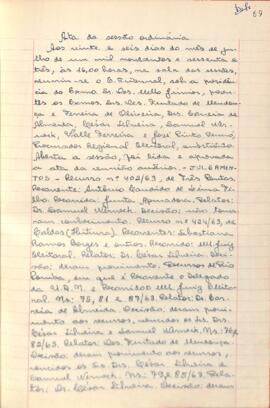 69
Ata da sessão ordinária
Aos vinte e seis dias do mês de ju-
lho de um mil novecentos e sessenta e
três, às 16,00 horas, na sala das sessões,
reuniu-se o Tribunal, sob a presidên-
cia do Exmo. Sr. Des. Mello Júnior, presen-
tes os Exmos. Srs. Des. Furtado de Mendon-
ça e Ferreira de Oliveira, Drs. Correia de
Almeida, César Silveira, Samuel
Valle Ferreira e José
Procurador Regional Eleitoral, substituto.
Aberta a sessão, foi lida e aprovada
a ata da reunião anterior. - JULGAMEN-
TOS - Recurso nº 402/63, de Três Pontas.
Recorrente: Antônio Candido de
Filho. Recorrida: Junta Apuradora. Relator:
Dr. Samuel Decisão: não toma-
ram conhecimento. Recurso nº 424/63, de
Caldas Recorrentes: Sebastiana
Ramos Borges e outros. Recorrido: MM. Juiz
Eleitoral. Relator: Dr. César Silveira. Deci-
são: deram provimento. Recursos de Rio
em que é Recorrente o Delegado
da U.D.N. e Recorrido o MM. Juiz Eleitoral
Ns: 75, 81 e 87/63. Relator: Dr. Cor-
reia de Almeida. Decisão: deram provi-
mento aos recursos, vencidos os Srs. Drs.
César Silveira e Samuel Ns: 76,
82/63. Relator: Des. Furtado de Mendonça.
Decisão: deram provimento aos recursos,
vencidos os Srs. Drs. César Silveira e
Samuel Ns: 79, 85/63. Rela-
tor: Dr. César Silveira. Decisão: deram